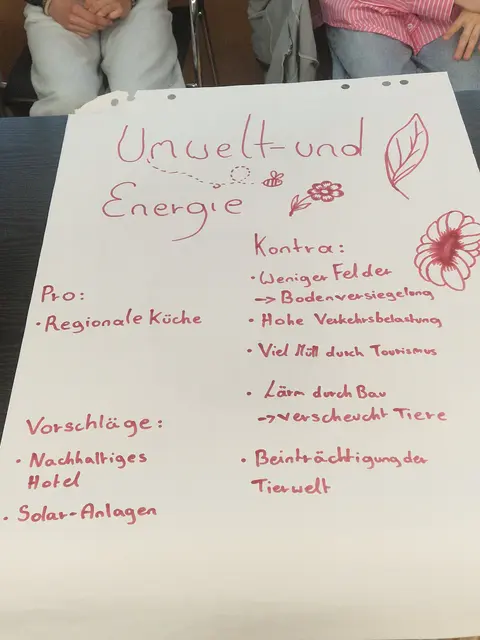 Umwelt- und
Energie
Pro:
• Regionale Küche
Vorschläge:
• Nachhaltiges
Hotel
• Solar-Anlagen
Kontra:
• Weniger Felder
-> Bodenversiegelung
• Hohe Verkehrsbelastung
• Viel Müll durch Tourismus
• Lärm durch Bau
-> verscheucht Tiere
• Beinträchtigung der
Tierwelt